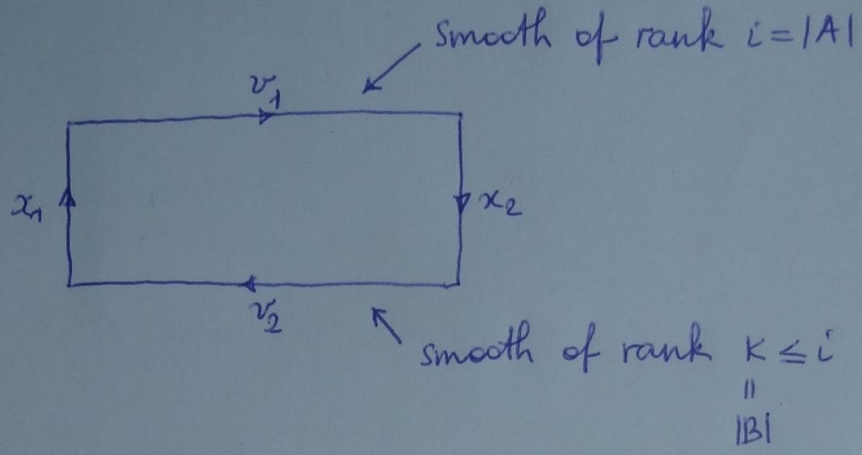 smooth of rank i = |A|
v₁
x₁
x₂
v₂
smooth of rank k ≤ i
||
|B|